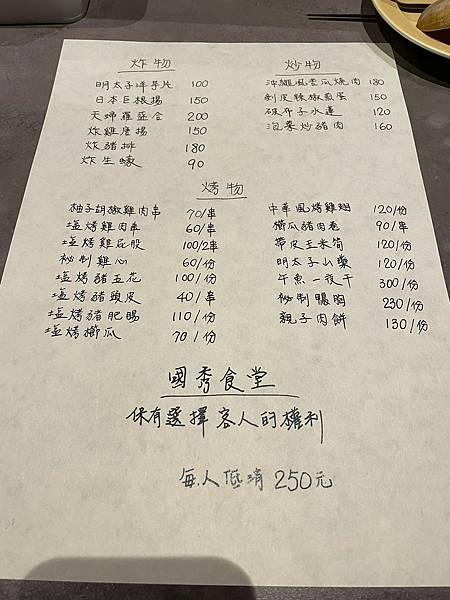 炸物
明太子洋芋片 100
日本巨根揚 150
天婦羅盛合 200
炸雞唐揚 150
炸豬排 180
炸生蠔 90
炒物
沖繩風苦瓜燒肉 180
剝皮辣椒煎蛋 150
破布子水蓮 120
泡菜炒豬肉 160
烤物
柚子胡椒雞肉串 70/串
塩烤雞肉串 60/串
塩烤雞屁股 100/2串
秘制雞心 60/份
塩烤豬五花 100/份
塩烤豬頭皮 40/串
塩烤豬肥腸 110/份
塩烤櫛瓜 70/份
中華風烤雞翅 120/份
櫛瓜豬肉卷 90/串
帶皮玉米筍 120/份
明太子山藥 120/份
午魚一夜干 300/份
秘制鴨胸 230/份
親子肉餅 130/份
國秀食堂
保有選擇客人的權利
每人低消250元